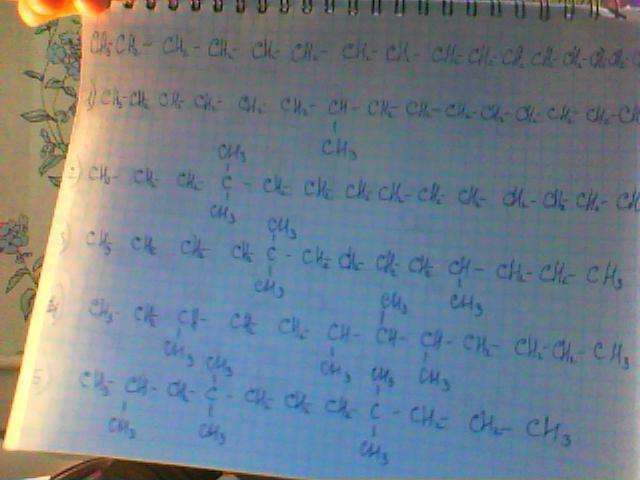 CH3 CH2 - CH2 - CH2 - CH2 - CH2 - CH2 - CH2 - CH2 - CH2 - CH2 - CH2 - CH2 - CH2 - CH2 -
1) CH3 - CH2 CH2 - CH2 - CH2 - CH2 - CH - CH2 - CH2 - CH2 - CH2 - CH2 - CH2 - CH2 - CH
CH3
CH3
2) CH3 - CH2 - CH2 - C - CH2 - CH2 - CH2 - CH2 - CH2 - CH2 - CH2 - CH2 - CH2 - CH
CH3
CH3
3) CH3 - CH2 - CH2 - CH2 C - CH2 CH2 - CH2 - CH2 CH - CH2 - CH2 - CH3
CH3 CH3
CH3
4) CH3 - CH2 CH - CH2 - CH2 - CH - CH - CH - CH2 - CH2 - CH2 - CH3
CH3 CH3 CH3
CH3 CH3
5) CH3 - CH - CH2 - C - CH2 - CH2 - CH2 C - CH2 - CH2 - CH3
CH3 CH3 CH3